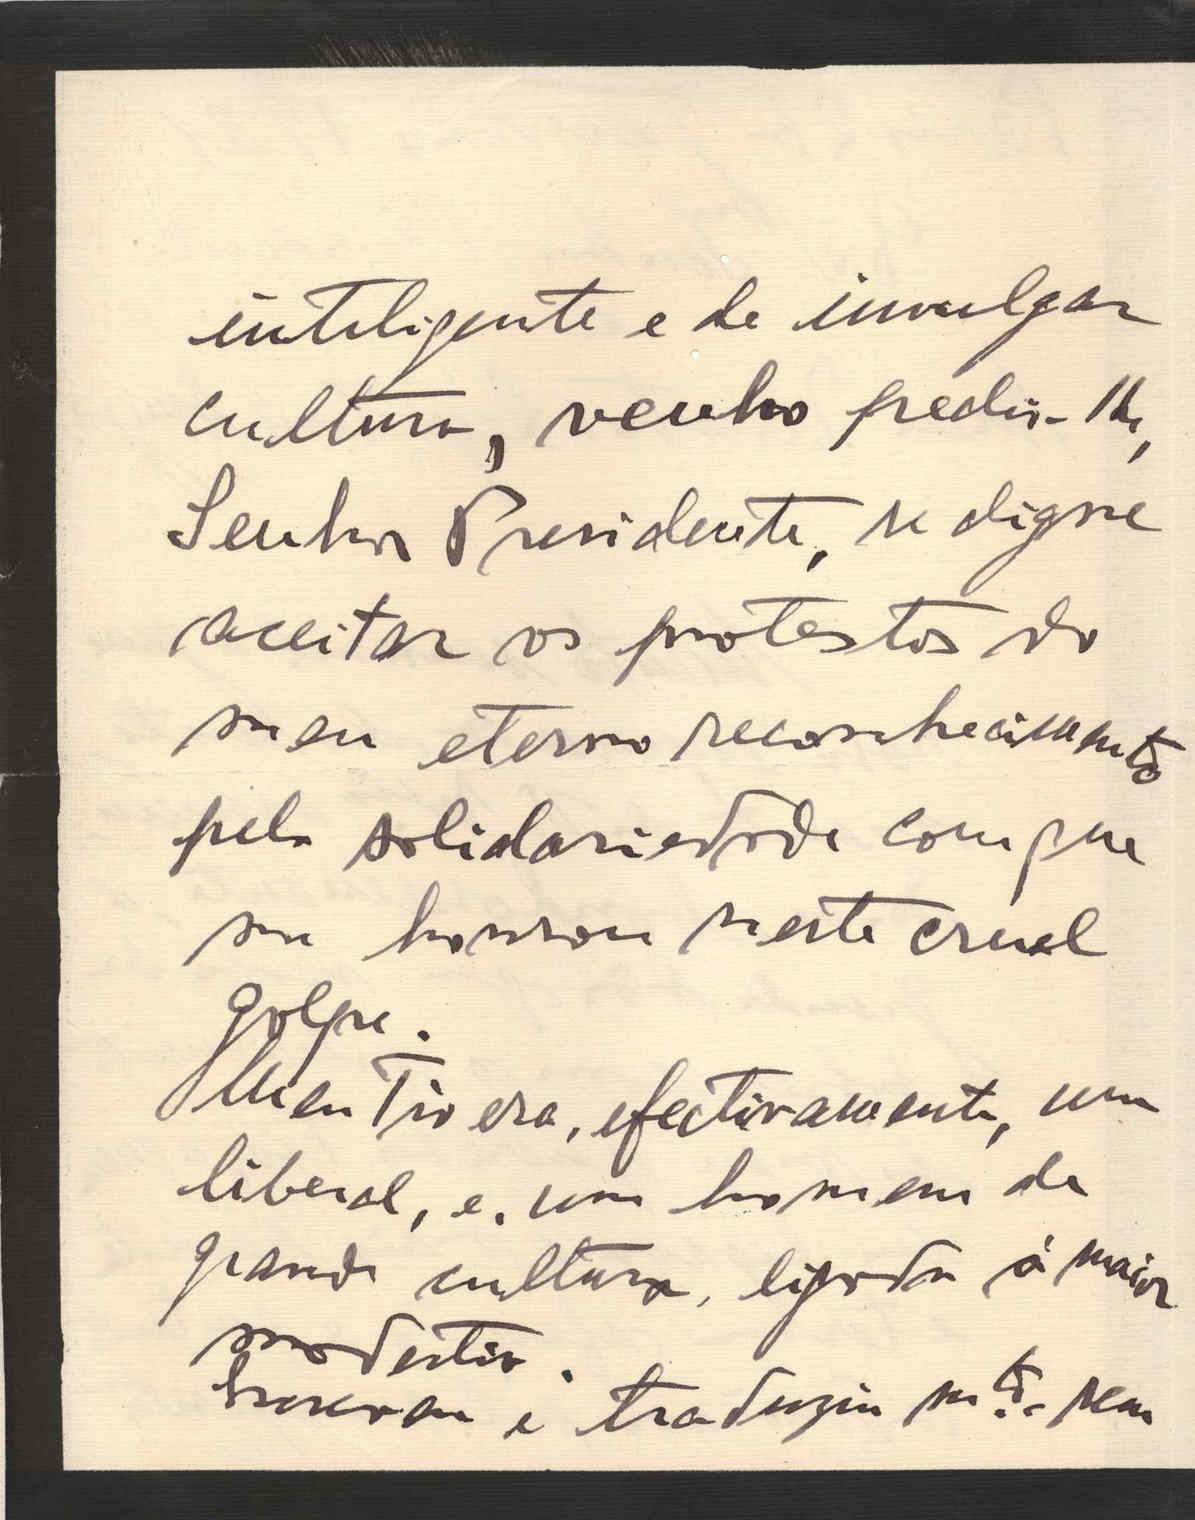 inteligente e de invulgar
cultura, venho pedir-lhe,
Senhor Presidente, se digne
aceitar os protestos do
meu eterno reconhecimento
pela solidariedade com que
me honrou neste cruel
golpe.
Meu Tio era, efectivamente, um
liberal, e, um homem de
grande cultura, ligada à maior
modestia.
Escreveu e traduziu mto. sem